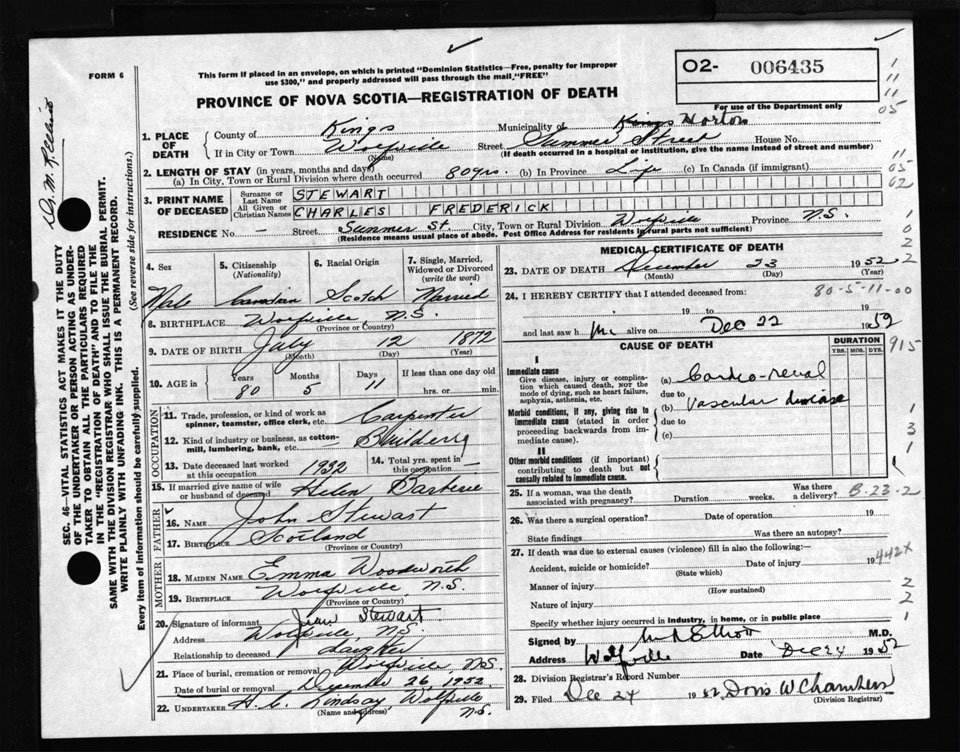 FORM 6
This form if placed in an envelope, on which is printed "Dominion Statistics—Free, penalty for improper
use $300," and properly addressed will pass through the mail, "FREE"
O2- 006435
For use of the Department only
PROVINCE OF NOVA SCOTIA—REGISTRATION OF DEATH
1. PLACE OF DEATH
County of Kings Municipality of Kings Horton
If in City or Town Wolfville Street Summer Street House No.
(Name) (If death occurred in a hospital or institution, give the name instead of street and number)
2. LENGTH OF STAY (in years, months and days)
(a) In City, Town or Rural Division where death occurred 80 yrs. (b) In Province Life (c) In Canada (if immigrant)
3. PRINT NAME OF DECEASED
Surname or Last Name STEWART
All Given or Christian Names CHARLES FREDERICK
RESIDENCE No. — Street Summer St. City, Town or Rural Division Wolfville Province N.S.
(Residence means usual place of abode. Post Office Address for residents in rural parts not sufficient)
4. Sex
Male
5. Citizenship (Nationality)
Canadian
6. Racial Origin
Scotch
7. Single, Married, Widowed or Divorced (write the word)
Married
8. BIRTHPLACE Wolfville, N.S.
(Province or Country)
9. DATE OF BIRTH July 12 1872
(Month) (Day) (Year)
10. AGE in Years 80 Months 5 Days 11 If less than one day old
hrs. or min.
OCCUPATION
11. Trade, profession, or kind of work as spinner, teamster, office clerk, etc. Carpenter
12. Kind of industry or business, as cotton-mill, lumbering, bank, etc.
13. Date deceased last worked at this occupation 1932
14. Total yrs. spent in this occupation —
15. If married give name of wife or husband of deceased Helen
FATHER
16. NAME John Stewart
17. BIRTHPLACE Scotland
(Province or Country)
MOTHER
18. MAIDEN NAME Emma Woodworth
19. BIRTHPLACE Wolfville, N.S.
(Province or Country)
20. Signature of informant Stewart
Address Wolfville, N.S.
Relationship to deceased daughter
21. Place of burial, cremation or removal Wolfville N.S.
Date of burial or removal December 26 1952
22. UNDERTAKER Lindsay, Wolfville
(Name and address) N.S.
MEDICAL CERTIFICATE OF DEATH
23. DATE OF DEATH December 23 1952
(Month) (Day) (Year)
24. I HEREBY CERTIFY that I attended deceased from:
80-5-11-00
19 to 19
and last saw h im alive on Dec 22 1952
CAUSE OF DEATH
DURATION
YRS. MOS. DYS.
I
Immediate cause
Give disease, injury or complication which caused death, NOT the mode of dying, such as heart failure, asphyxia, asthenia, etc.
(a) Cardio-renal
due to
Morbid conditions, if any, giving rise to immediate cause (stated in order proceeding backwards from immediate cause).
(b) Vascular disease
due to
(c)
II
Other morbid conditions (if important) contributing to death but not causally related to immediate cause.
25. If a woman, was the death associated with pregnancy? Duration weeks. Was there a delivery?
B-23-2
26. Was there a surgical operation? Date of operation 19
State findings Was there an autopsy?
27. If death was due to external causes (violence) fill in also the following:—
Accident, suicide or homicide? Date of injury 19
(State which)
442X
Manner of injury
(How sustained)
Nature of injury
Specify whether injury occurred in industry, in home, or in public place
Signed by M.D.
Address Wolfville Date Dec 24 1952
28. Division Registrar's Record Number
29. Filed Dec 24 1952, Doris W Chambers
(Division Registrar)
915
SEC. 46—VITAL STATISTICS ACT MAKES IT THE DUTY
OF THE UNDERTAKER OR PERSON ACTING AS UNDER-
TAKER TO OBTAIN ALL THE PARTICULARS REQUIRED
IN THE "REGISTRATION OF DEATH" AND TO FILE THE
SAME WITH THE DIVISION REGISTRAR WHO SHALL ISSUE THE BURIAL PERMIT.
WRITE PLAINLY WITH UNFADING INK. THIS IS A PERMANENT RECORD.
Every item of information should be carefully supplied. (See reverse side for instructions.)